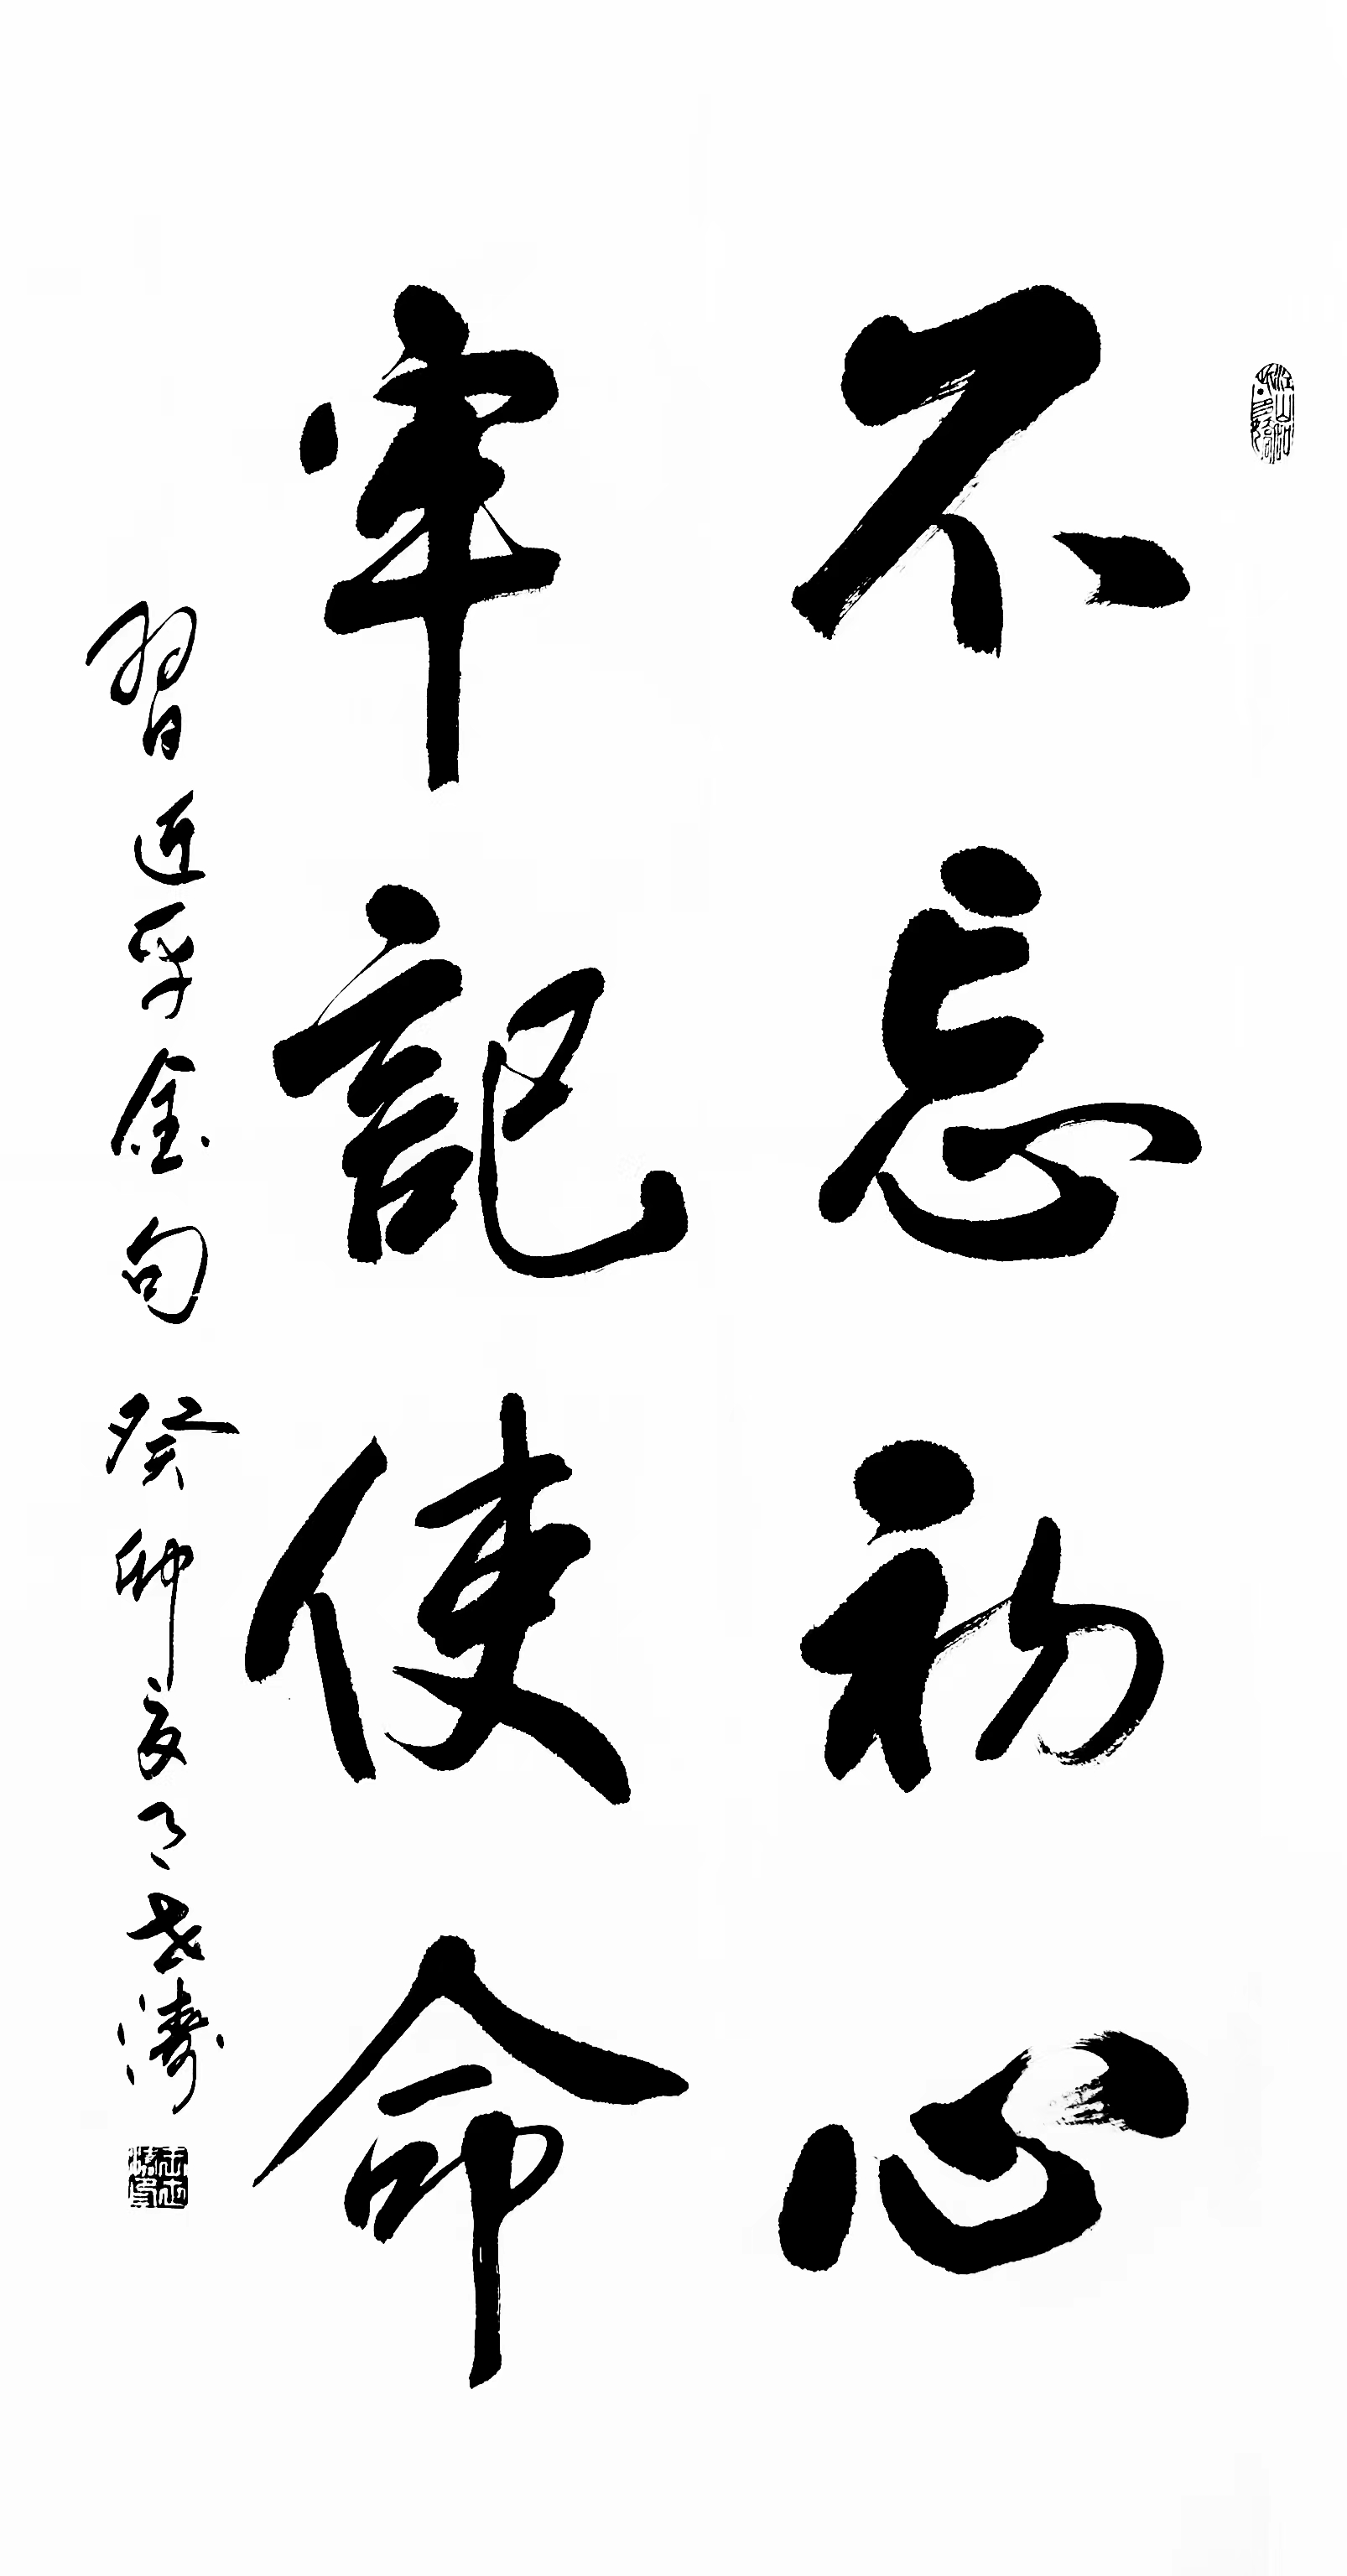 不忘初心
牢記使命
習近平金句 癸卯夏月志濤